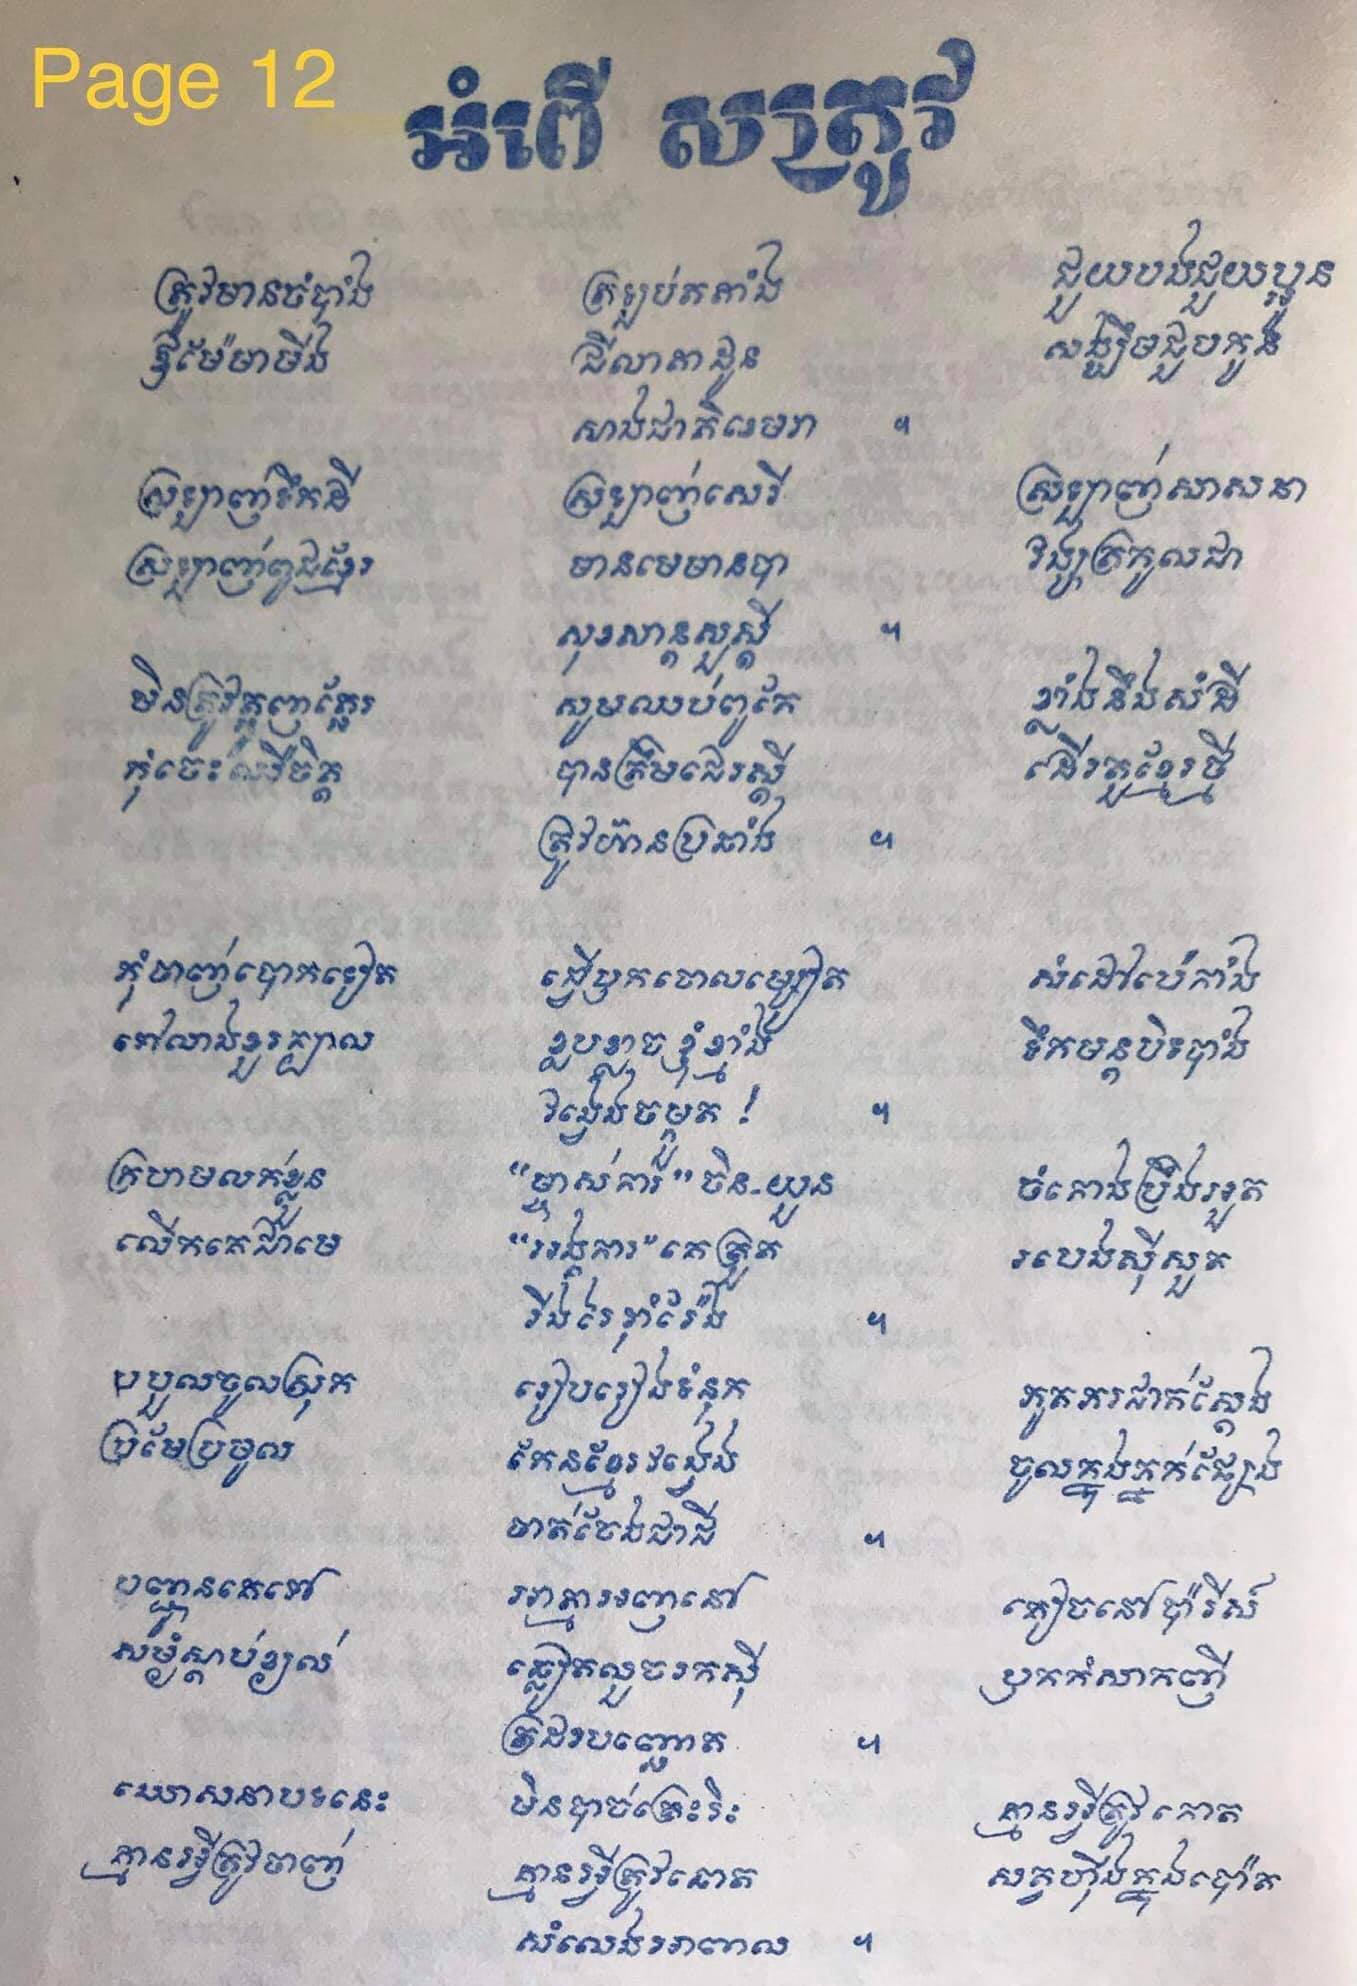 Page 12
អំពើ សត្រូវ
ត្រូវមានចំបាំង ត្រឡប់តតាំង ជួយបងជួយប្អូន
ឪម៉ែមាមីង ជីលាតាដូន សង្ឃឹមជួបកូន
សាងជាតិខេមរា ។
ស្រឡាញ់ទឹកដី ស្រឡាញ់សេរី ស្រឡាញ់សាសនា
ស្រឡាញ់ពូជខ្មែរ មានមេមានបា វង្សត្រកូលជា
សុខសាន្តសួស្តី ។
មិនត្រូវត្អូញត្អែរ សូមឈប់ពូកែ ខ្លាំងនឹងសំដី
កុំចេះឈឺចិត្ត បានត្រឹមជេរស្តី ដើរតួខ្មែរថ្មី
ត្រូវហ៊ានប្រឆាំង ។
កុំចាញ់បោកទៀត ធ្វើឫកចោលម្សៀត សំដៅប៉េកាំង
ទៅលាងខួរក្បាល ខ្លបខ្លាចខ្ញុំខ្មាំង ទឹកមន្តបិទបាំង
វង្វេងចម្កួត ! ។
ក្រហមលក់ខ្លួន "ម្ចាស់ការ" ចិន-យួន ចំកោងប្រឹងរខួត
លើកគេជាមេ "អង្គការ" គេត្រួត របេងស៊ីសួត
រឹងរៃរ៉ាំរ៉ែង ។
បបួលចូលស្រុក រៀបរៀងទំនុក ភូតភរជាក់ស្តែង
ប្រមែប្រមូល កែនខ្មែរវង្វេង ចូលក្នុងភ្នក់ផ្សែង
ចាត់ចែងជាជី ។
បញ្ជូនគេទៅ អាត្មាអញនៅ គៀចនៅប៉ារីស៍
សម្ងំស្តាប់ខ្យល់ ឆ្លៀតលួចរកស៊ី ប្រកកំសាកញី
ត្រដរបញ្ឆោត ។
ឃោសនាបទនេះ មិនបាច់ត្រេះរិះ គ្មានអ្វីត្រូវកោត
គ្មានអ្វីត្រូវចាញ់ គ្មានអ្វីត្រូវឆោត សត្វហ៊ីងក្នុងប៉ោត
សំលេងអាពាល ។